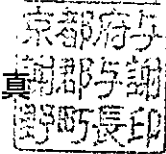 真
京都府与
謝郡与謝
野町長印